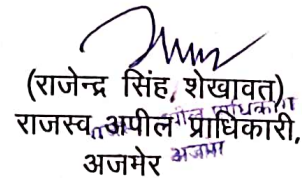 (राजेन्द्र सिंह, शेखावत)
राजस्व अपील प्राधिकारी,
अजमेर